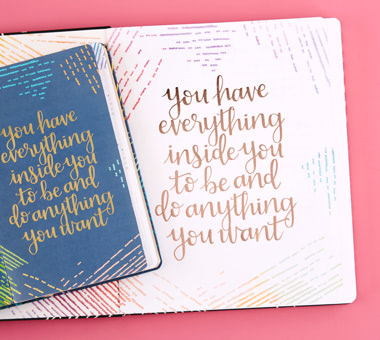 you have
everything
inside you
to be and
do anything
you want
you have
everything
inside you
to be and
do anything
you want